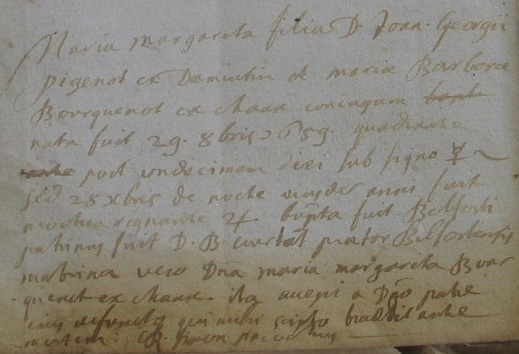 Maria margareta filia D. Joan. Georgii
pigenot ex Damiutin et mariæ Barboræ
Bourquenot ex chaux coniugum
nata fuit 29. 8bris 1659. quadrante
post undecimam diei sub signo ☿
sed 28 xbris de nocte eiusdem anni fuit
mortua regnante ♃ bapta fuit Belforti
patrinus fuit D. B. prætor Belfortensis
matrina vero Dna maria margareta Bour
quenot ex chaux. ita accepi a Dno patre
eius defuncto qui mihi scripto ante
mortem.